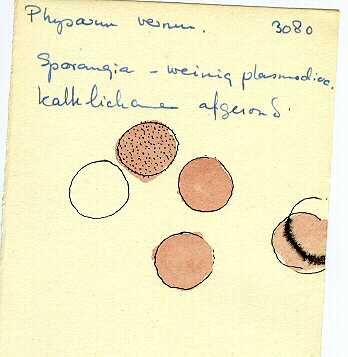 Physarum vernum. 3080
Sporangia - weinig plasmodioc.
Kalklichamen afgerond.